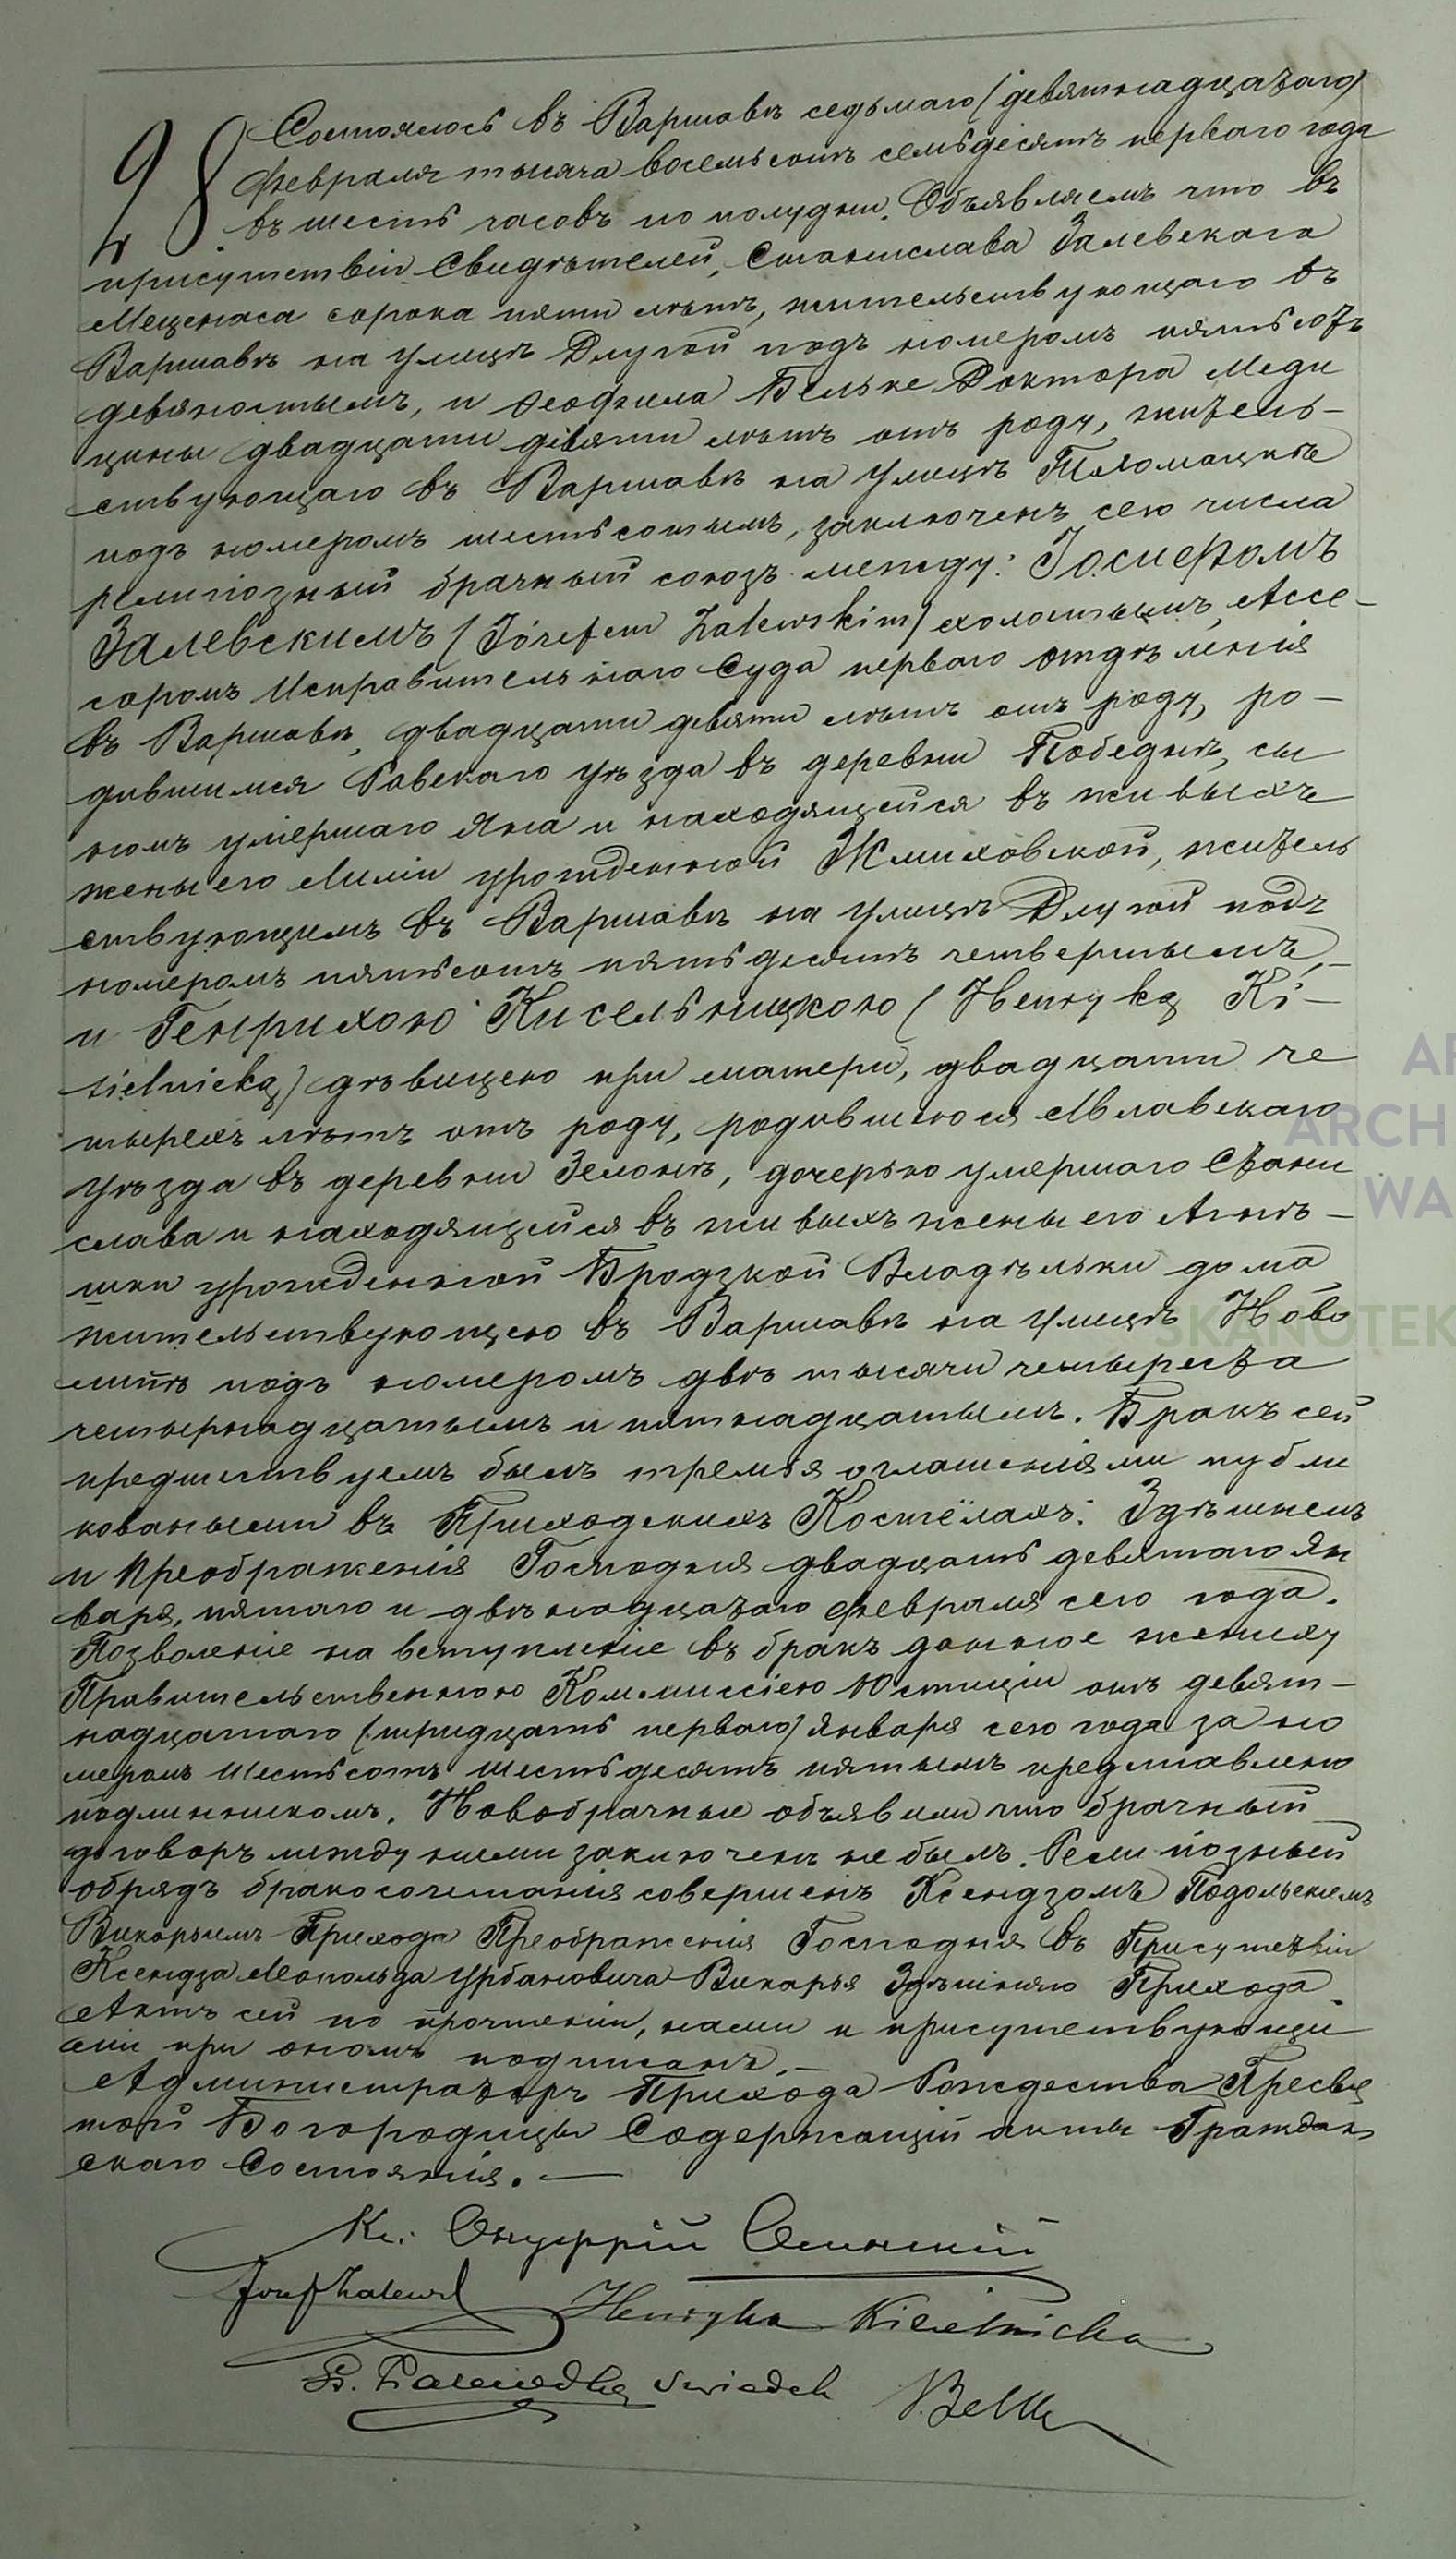 98
Состоялось въ Варшавѣ седьмаго (девятнадцатаго)
Февраля тысяча восемьсотъ семьдесятъ перваго года
въ шесть часовъ по полудни. Объявляемъ что въ
присутствіи Свидѣтелей, Станислава Залевскаго
Меценаса сорока пяти лѣтъ, жительствующаго въ
Варшавѣ на улицѣ Длугой подъ номеромъ пятьсотъ
девяностымъ, и Теофила Бельке Доктора Меди
цины двадцати девяти лѣтъ отъ роду, житель-
ствующаго въ Варшавѣ на улицѣ Тломацкѣ
подъ номеромъ шестьсотымъ, заключенъ сего числа
религіозный брачный союзъ между: Іосифомъ
Залевскимъ (Józefem Zalewskim) холостымъ, Ассе-
соромъ Исправительнаго Суда перваго отдѣленія
въ Варшавѣ, двадцати девяти лѣтъ отъ роду, ро-
дившимся Равскаго уѣзда въ деревни Победнѣ, сы
номъ умершаго Яна и находящейся въ живыхъ
жены его Миліи урожденной Жмиховской, житель
ствующимъ въ Варшавѣ на улицѣ Длугой подъ
номеромъ пятьсотъ пятьдесятъ четвертымъ, -
и Генрихою Кисельницкою (Henryką Ki-
sielnicką) дѣвицею при матери, двадцати че
тырехъ лѣтъ отъ роду, родившеюся Млавскаго
уѣзда въ деревни Зелонѣ, дочерью умершаго Стани
слава и находящейся въ живыхъ жены его Агнѣ-
шки урожденной Бродзкой Владѣльки дома
жительствующею въ Варшавѣ на улицѣ Ново
липѣ подъ номеромъ двѣ тысячи четыреста
четырнадцатымъ и пятнадцатымъ. Бракъ сей
предшествуемъ былъ тремя оглашеніями публи
кованными въ Приходскихъ Костёлахъ: Здѣшнемъ
и Преображенія Господня двадцать девятаго Ян
варя, пятаго и двѣнадцатаго Февраля сего года.
Позволеніе на вступленіе въ бракъ данное жениху
Правительственною Коммиссіею Юстиціи отъ девят-
надцатаго (тридцать перваго) Января сего года за но
меромъ шестьсотъ шестьдесятъ пятымъ представлено
подлинникомъ. Новобрачные объявили что брачный
договоръ между ними заключенъ не былъ. Религіозный
обрядъ бракосочетанія совершенъ Ксендзомъ Подольскимъ
Викарымъ Прихода Преображенія Господня въ Присутствіи
Ксендза Леопольда Урбановича Викарья Здѣшняго Прихода.
Актъ сей по прочтеніи, нами и присутствующи
ми при ономъ подписанъ. -
Администраторъ Прихода Рождества Пресвя
той Богородицы Содержащій акты Граждан
скаго Состоянія. -
Кс: Онуфрій
Józef Zalewski
Henryka Kisielnicka
St. Zalewski Swiadek
Belke
AR
ARCH
WA
SKANOTEK